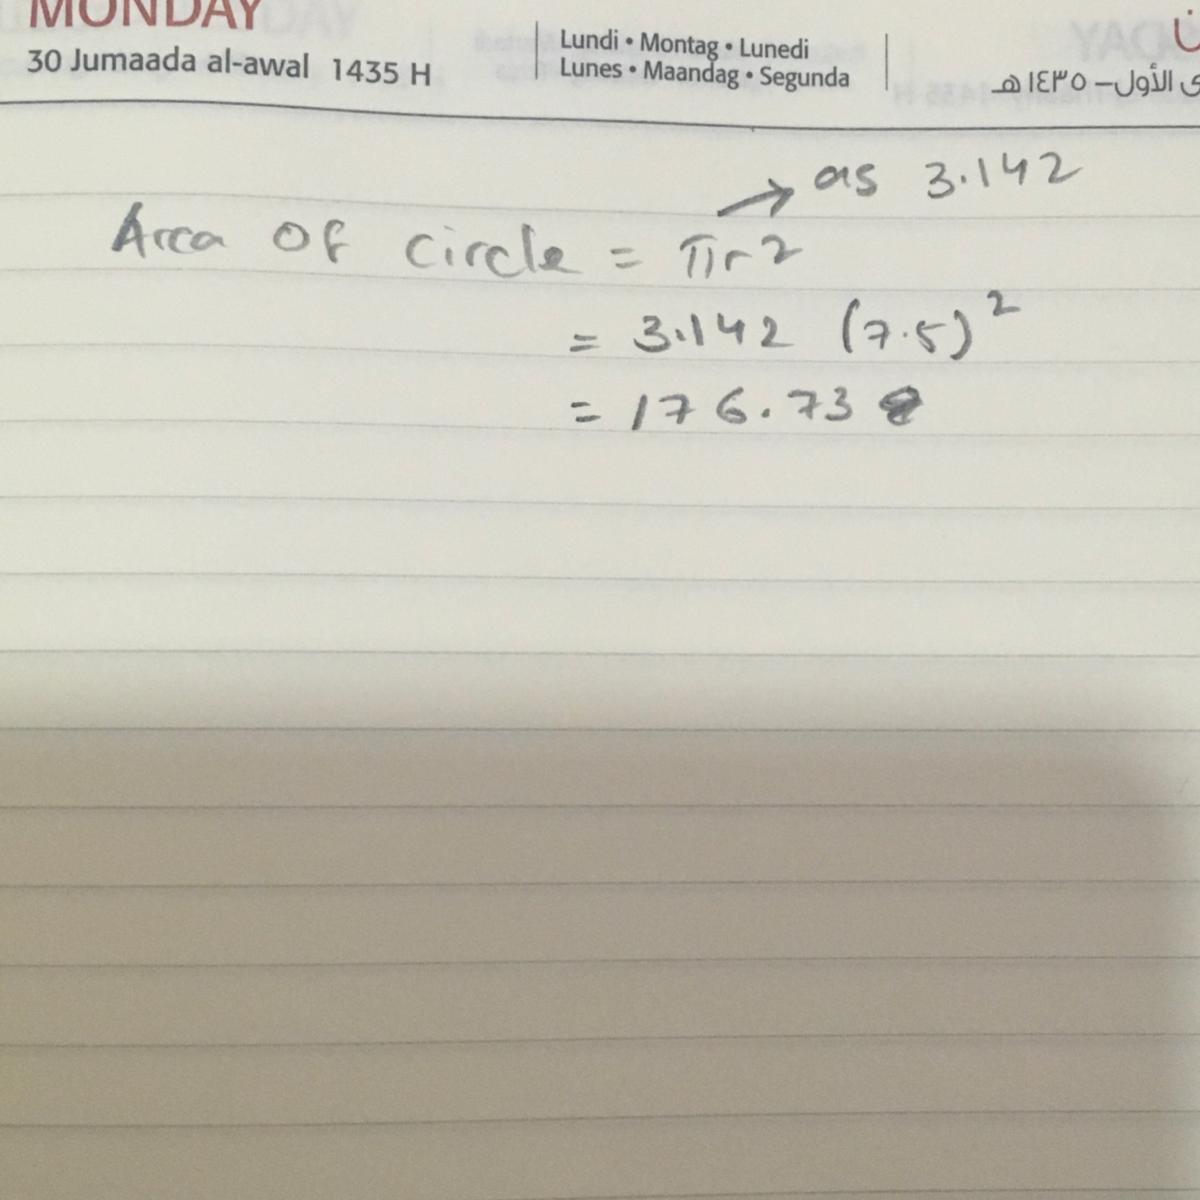 MONDAY
30 Jumaada al-awal 1435 H
Lundi • Montag • Lunedi
Lunes • Maandag • Segunda
الأول – ١٤٣٥ هـ
as 3.142
Area Of circle = πr2
= 3.142 (7.5)²
= 176.73